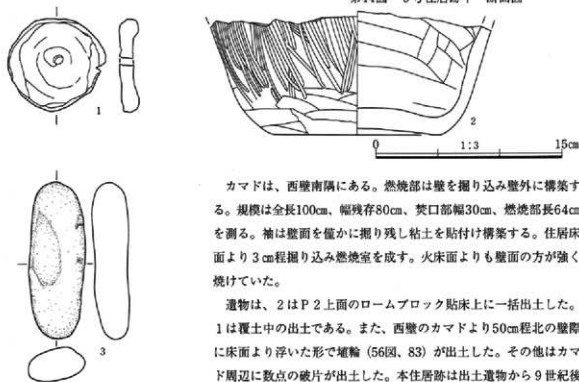 1
2
0 1:3 15cm
3
カマドは、西壁南隅にある。燃焼部は壁を掘り込み壁外に構築す
る。規模は全長100cm、幅残存80cm、焚口部幅30cm、燃焼部長64cm
を測る。袖は壁面を僅かに掘り残し粘土を貼付け構築する。住居床
面より3cm程掘り込み燃焼室を成す。火床面よりも壁面の方が強く
焼けていた。
遺物は、2はP2上面のロームブロック貼床上に一括出土した。
1は覆土中の出土である。また、西壁のカマドより50cm程北の壁際
に床面より浮いた形で埴輪(56図、83)が出土した。その他はカマ
ド周辺に数点の破片が出土した。本住居跡は出土遺物から9世紀後